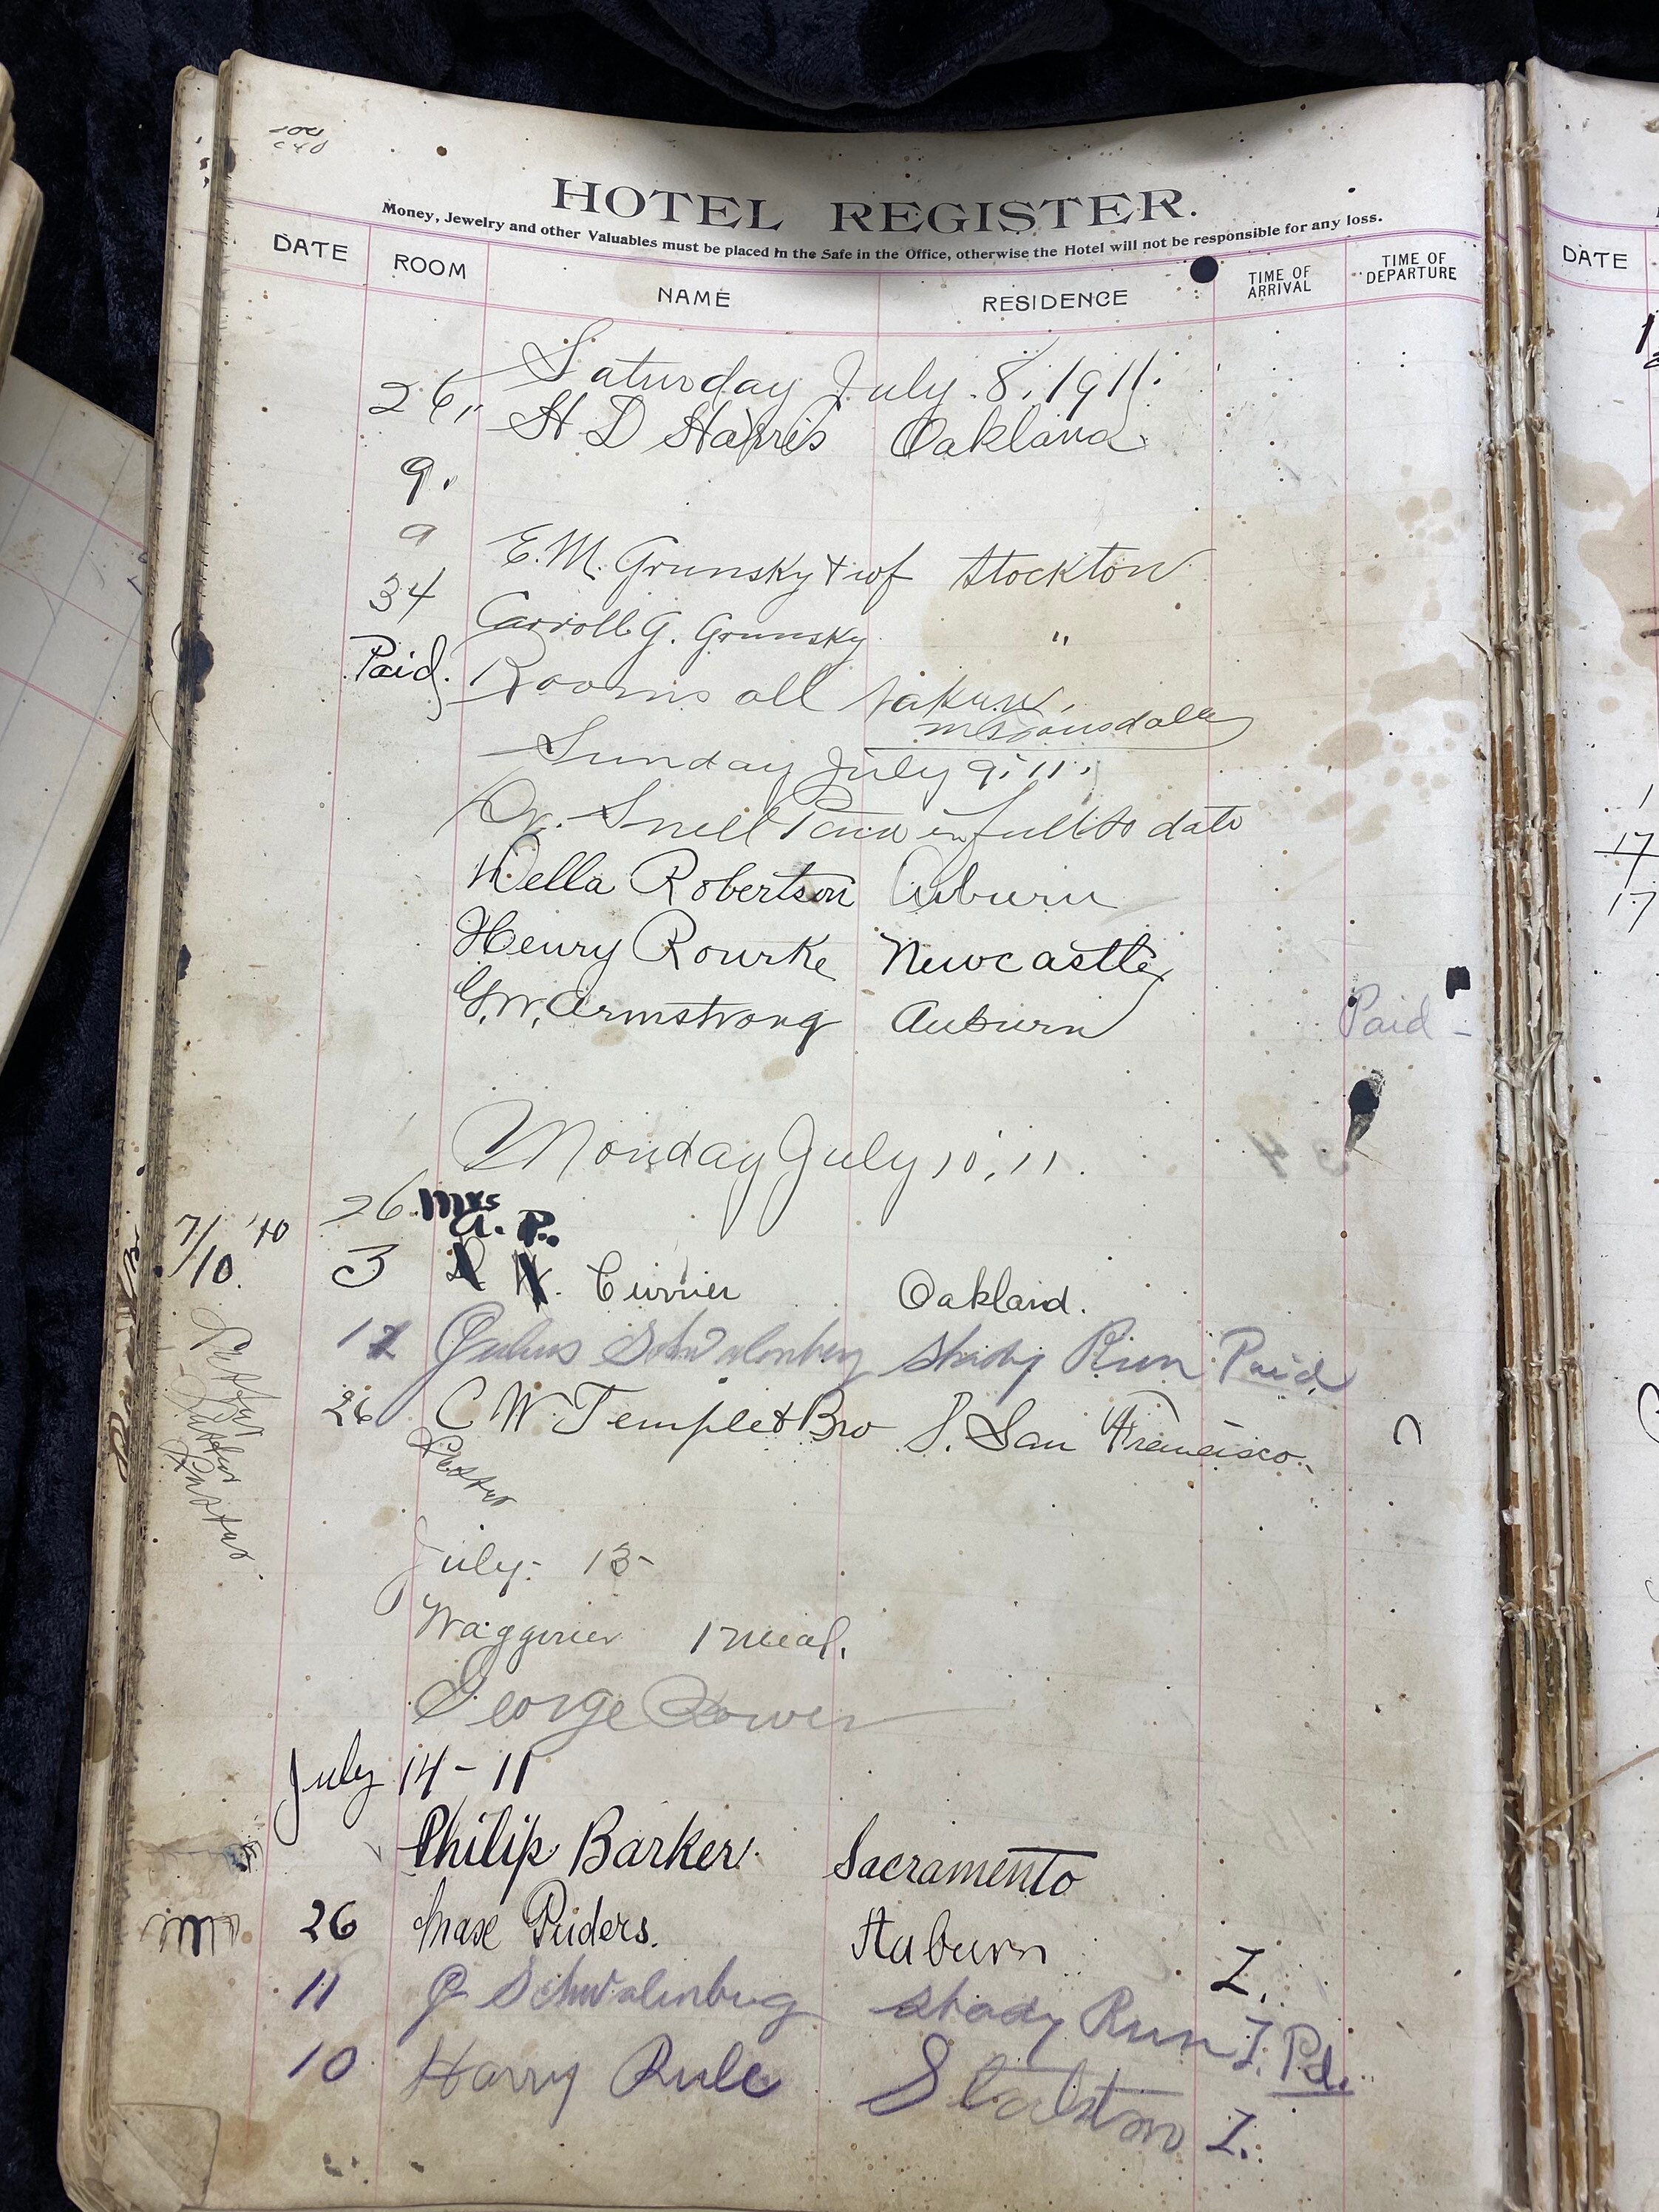 HOTEL REGISTER.
Money, Jewelry and other Valuables must be placed in the Safe in the Office, otherwise the Hotel will not be responsible for any loss.
DATE ROOM NAME RESIDENCE TIME OF ARRIVAL TIME OF DEPARTURE
DATE
Saturday July. 8, 1911.
26,, H D Harris Oakland
9.
9 E. M. Grunsky + wf Stockton
34 Carroll G. Grunsky "
Paid. Rooms all taken,
Sunday July 9, 11.
Dr. Snell Paid in full to date
Della Robertson Auburn
Henry Rourke Newcastle
G. W. Armstrong Auburn Paid -
Monday July 10, 11.
26 Mrs
A. P.
7/10 '10 3 Currier Oakland.
12 Julius Schwalenberg Shady Run Paid
26 C W Temple & Bro S. San Francisco.
July - 13 -
Waggoner 1 meal.
George Power
July 14 - 11
Philip Barker. Sacramento
26 Chase Puders. Auburn I.
11 J Schwalenburg Shady Run I. Pd.
10 Harry Rule Stockton I.
17
17